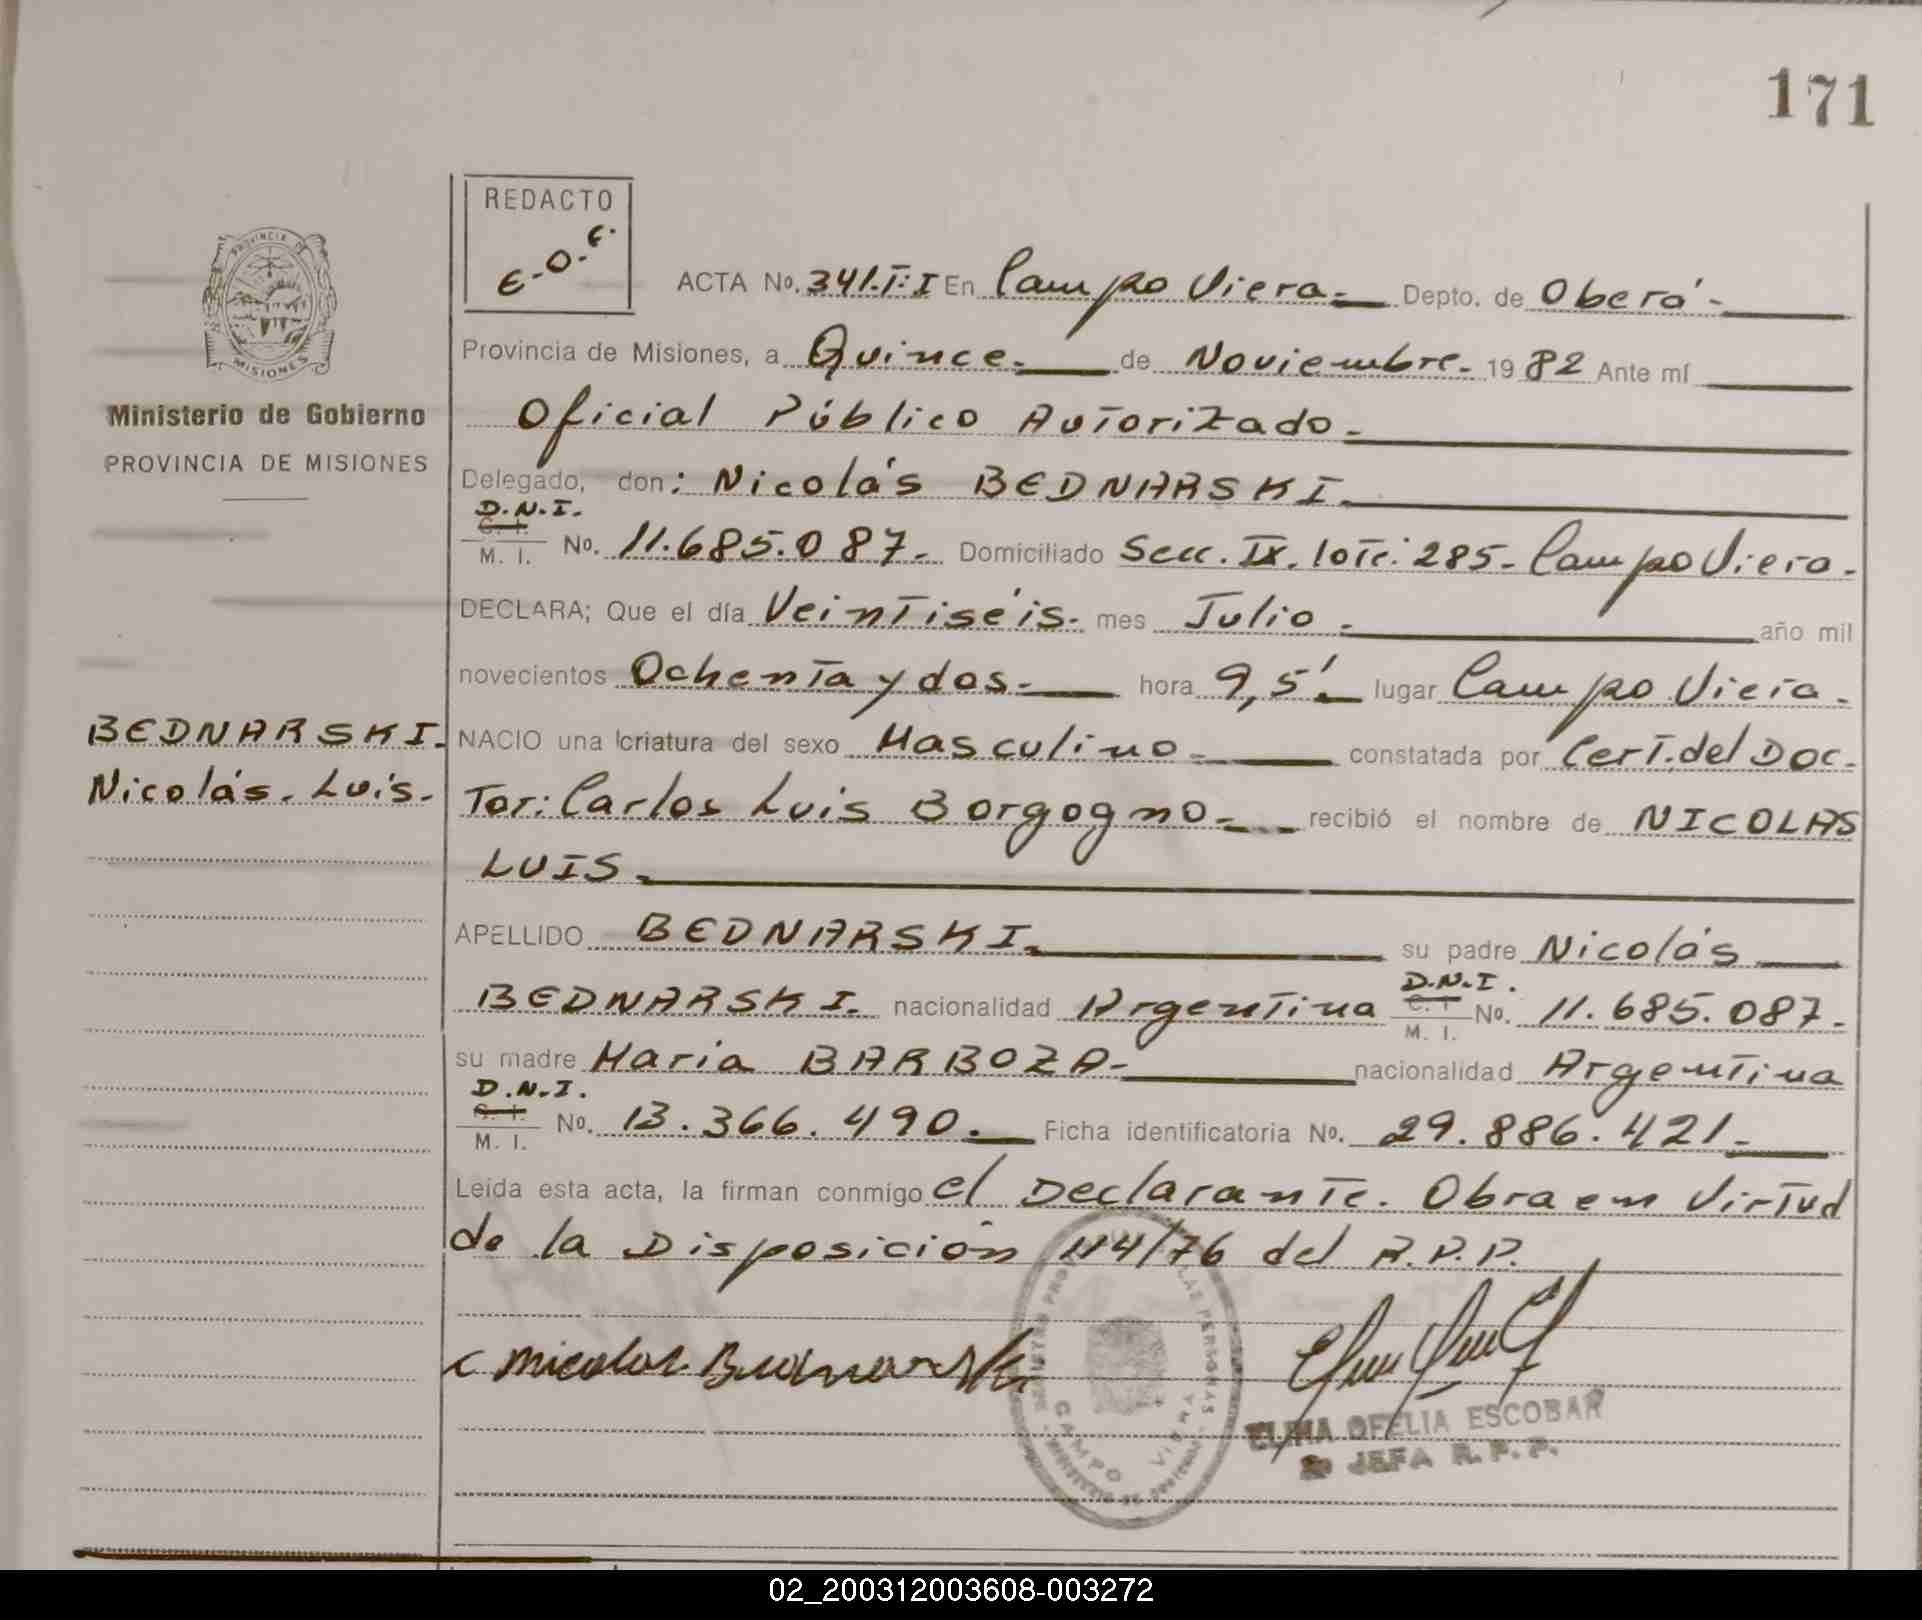 171
REDACTO
E.O.E.
PROVINCIA DE
MISIONES
Ministerio de Gobierno
PROVINCIA DE MISIONES
ACTA No. 341.T:I En Campo Viera.- Depto. de Oberá.-
Provincia de Misiones, a Quince. de Noviembre. 1982 Ante mí
Oficial Público Autorizado.
Delegado, don: Nicolás BEDNARSKI.
D.N.I.
C. I.
M. I. No. 11.685.087.- Domiciliado Secc. IX. lote: 285- Campo Viera.
DECLARA; Que el día Veintiséis. mes Julio. año mil
novecientos Ochenta y dos. hora 9,5' lugar Campo Viera.
BEDNARSKI.
Nicolás. Luis.
NACIO una criatura del sexo Masculino. constatada por Cert. del Doc-
Tor: Carlos Luis Borgogno. recibió el nombre de NICOLAS
LUIS.
APELLIDO BEDNARSKI. su padre Nicolás
BEDNARSKI. nacionalidad Argentina D.N.I. C. I. M. I. No. 11.685.087.
su madre Maria BARBOZA. nacionalidad Argentina
D.N.I.
C. I.
M. I. No. 13.366.490. Ficha identificatoria No. 29.886.421.
Leída esta acta, la firman conmigo el Declarante. Obra en Virtud
de la Disposición 114/76 del R.P.P.
Nicolas Bednarski
LAS PERSONAS
CAMPO VIERA
ELMA OFELIA ESCOBAR
JEFA R.P.P.
02_200312003608-003272